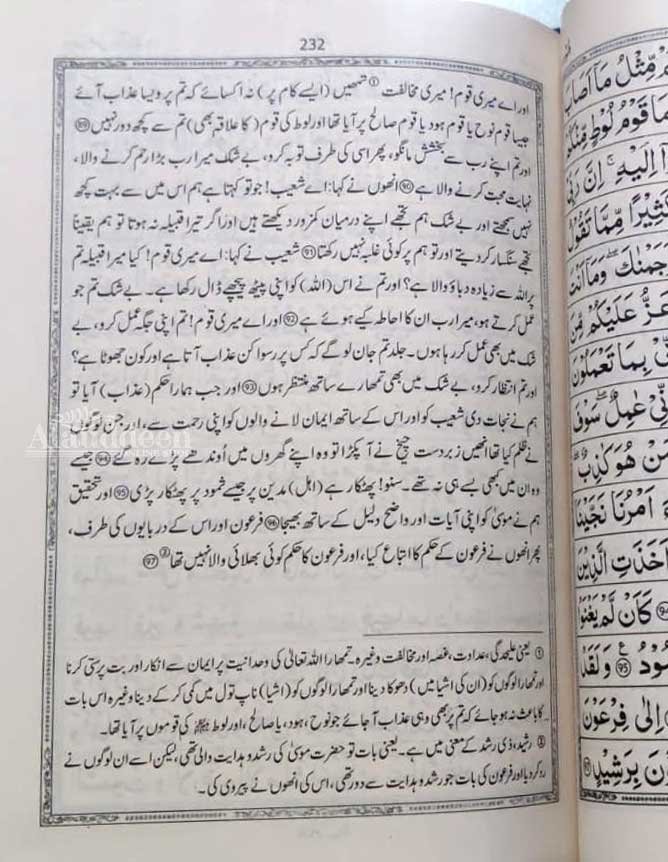 232
اور اے میری قوم! میری مخالفت ① تمھیں (ایسے کام پر) نہ اکسائے کہ تم پر ویسا عذاب آئے
جیسا قوم نوح یا قوم ہود یا قوم صالح پر آیا تھا اور لوط کی قوم (کا علاقہ بھی) تم سے کچھ دور نہیں ㊽
اور تم اپنے رب سے بخشش مانگو، پھر اسی کی طرف توبہ کرو، بے شک میرا رب بڑا رحم کرنے والا،
نہایت محبت کرنے والا ہے 90 انھوں نے کہا: اے شعیب! جو تو کہتا ہے ہم اس میں سے بہت کچھ
نہیں سمجھتے اور بے شک ہم تجھے اپنے درمیان کمزور دیکھتے ہیں اور اگر تیرا قبیلہ نہ ہوتا تو ہم یقیناً
تجھے سنگسار کر دیتے اور تو ہم پر کوئی غلبہ نہیں رکھتا 91 شعیب نے کہا: اے میری قوم! کیا میرا قبیلہ تم
پر اللہ سے زیادہ دباؤ والا ہے؟ اور تم نے اس (اللہ) کو اپنی پیٹھ پیچھے ڈال رکھا ہے۔ بے شک تم جو
عمل کرتے ہو، میرا رب ان کا احاطہ کیے ہوئے ہے 92 اور اے میری قوم! تم اپنی جگہ عمل کرو، بے
شک میں بھی عمل کر رہا ہوں۔ جلد تم جان لو گے کہ کس پر رسوا کن عذاب آتا ہے اور کون جھوٹا ہے؟
اور تم انتظار کرو، بے شک میں بھی تمھارے ساتھ منتظر ہوں 93 اور جب ہمارا حکم (عذاب) آیا تو
ہم نے نجات دی شعیب کو اور اس کے ساتھ ایمان لانے والوں کو اپنی رحمت سے، اور جن لوگوں
نے ظلم کیا تھا انھیں زبردست چیخ نے آ پکڑا تو وہ اپنے گھروں میں اوندھے پڑے رہ گئے 94 جیسے
وہ ان میں کبھی بسے ہی نہ تھے۔ سنو! پھٹکار ہے (اہل) مدین پر جیسے ثمود پر پھٹکار پڑی 95 اور تحقیق
ہم نے موسیٰ کو اپنی آیات اور واضح دلیل کے ساتھ بھیجا 96 فرعون اور اس کے درباریوں کی طرف،
پھر انھوں نے فرعون کے حکم کا اتباع کیا، اور فرعون کا حکم کوئی بھلائی والا نہیں تھا ② 97
① یعنی علیحدگی، عداوت، غصہ اور مخالفت وغیرہ۔ تمھارا اللہ تعالیٰ کی وحدانیت پر ایمان سے انکار اور بت پرستی کرنا
اور تمھارا لوگوں کو (ان کی اشیا میں) دھوکا دینا اور تمھارا لوگوں کو (اشیا) ناپ تول میں کمی کر کے دینا وغیرہ اس بات
کا باعث نہ ہو جائے کہ تم پر بھی وہی عذاب آ جائے جو نوح، ہود، یا صالح، اور لوط کی قوموں پر آیا تھا۔
② رشید، ذی رشد کے معنی میں ہے۔ یعنی بات تو حضرت موسیٰ کی رشد و ہدایت والی تھی، لیکن اسے ان لوگوں نے
رد کر دیا اور فرعون کی بات جو رشد و ہدایت سے دور تھی، اس کی انھوں نے پیروی کی۔
مِّثْلُ مَآ اَصَابَ
قَوْمُ لُوْطٍ مِّنْكُمْ
اِلَيْهِ ۭ اِنَّ رَبِّيْ
كَثِيْرًا مِّمَّا تَقُوْلُ
وَمَآ اَنْتَ
عَلَيْكُمْ مِّنَ
بِمَا تَعْمَلُوْنَ
عَامِلٌ ۭ سَوْفَ
مَنْ هُوَ كَاذِبٌ
اَمْرُنَا نَجَّيْنَا
اَخَذَتِ الَّذِيْنَ
94 كَاَنْ لَّمْ يَغْنَوْا
95 وَلَقَدْ
اِلٰى فِرْعَوْنَ
بِرَشِيْدٍ 97